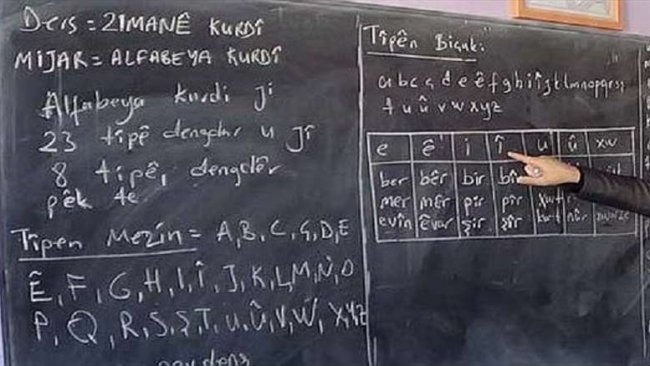 Ders = ZIMANÊ KURDÎ
MIJAR = ALFABEYA KURDÎ
Alfabeya kurdi ji
23 tîpê dengdar u Jî
8 tîpê, dengdêr
pêk te
Tîpên Mezin = A, B, C, Ç, D, E
Ê, F, G, H, I, Î, J, K, L, M, N, O
P, Q, R, S, Ş, T, U, Û, V, W, X, Y, Z
Tîpên Biçuk:
a b c ç d e ê f g h i î j k l m n o p q r s ş
t u û v w x y z
e ê i î u û xw
ber bêr bir bîr
mer mêr pir pîr
evîn êvar şir şîr nûr